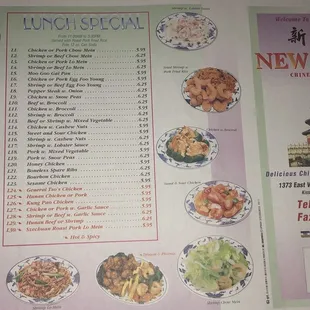 LUNCH SPECIAL
L1. Chicken or Pork Chow Mein 5.95
L2. Shrimp or Beef Chow Mein 6.25
L3. Chicken or Pork Lo Mein 5.95
L4. Shrimp or Beef Lo Mein 6.25
L5. Moo Goo Gai Pan 5.95
L6. Chicken or Pork Egg Foo Young 5.95
L7. Shrimp or Beef Egg Foo Young 6.25
L8. Pepper Steak w. Onion 6.25
L9. Chicken w. Snow Peas 5.95
L10. Beef w. Broccoli 6.25
L11. Chicken w. Broccoli 5.95
L12. Shrimp w. Broccoli 6.25
L13. Beef or Shrimp w. Mixed Vegetable 6.25
L14. Chicken w. Cashew Nuts 5.95
L15. Sweet and Sour Chicken 5.95
L16. Shrimp w. Cashew Nuts 6.25
L17. Shrimp w. Lobster Sauce 6.25
L18. Pork w. Mixed Vegetable 5.95
L19. Pork w. Snow Peas 5.95
L20. Honey Chicken 6.25
L21. Boneless Spare Ribs 6.25
L22. Bourbon Chicken 6.25
L23. Sesame Chicken
L24. General Tso's Chicken
L25. Hunan Chicken or Pork 5.95
L26. Kung Pao Chicken 5.95
L27. Chicken or Pork w. Garlic Sauce 5.95
L28. Shrimp or Beef w. Garlic Sauce
L29. Hunan Beef or Shrimp
L30. Szechuan Roast Pork Lo Mein 5.95
Hot & Spicy
Welcome
新
NEW
CHINE
Delicious Chi
1373 East
Tel
Fa